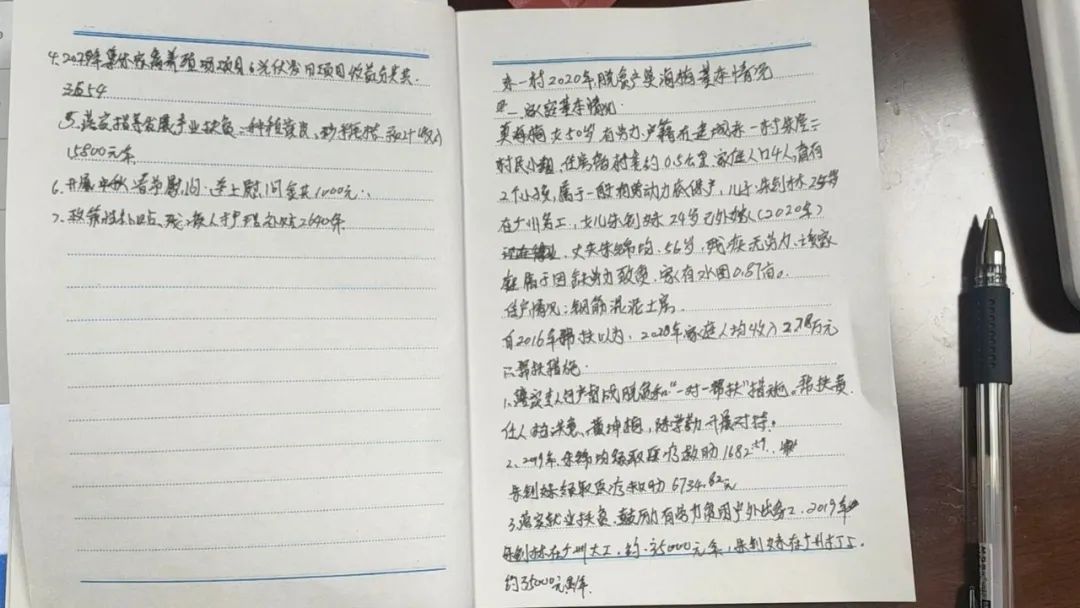 4.2020年集体家禽养殖场项目、光伏发电项目收益分类共
5.落实指导发展产业扶贫:种植资员、砂糖桔,预计收入
15800元/年
6.开展中秋、春节慰问,送上慰问金共1000元
7.政策性补贴,残疾人护理补贴2640年
东一村2020年脱贫户吴海梅基本情况
一、家庭基本情况
吴海梅 女50岁 有劳力,户籍在
村民小组,住房离村委约0.5公里,家庭人口4人,育有
2个小孩,属于一般有劳动力脱贫户,儿子,朱创林
在广州务工,女儿朱创妹 24岁已外嫁(2020年)
丈夫朱锦均,56岁,残疾无劳力,该家
庭属于因缺劳力致贫,家有水田0.87亩。
住户情况:钢筋混泥土房
自2016年帮扶以为,2020年家庭人均收入2.78万元
二、帮扶措施:
1.落实 脱贫和“一对一帮扶”措施。帮扶责
任人 开展对接。
2、2019年朱锦均领取医疗救助1682
朱创妹领取医疗救助6734.62元
3.落实就业扶贫,鼓励有劳力贫困户外出务工,2019年
朱创林在广州打工,约35000元/年,朱创妹在广州打工,
约35000元/年